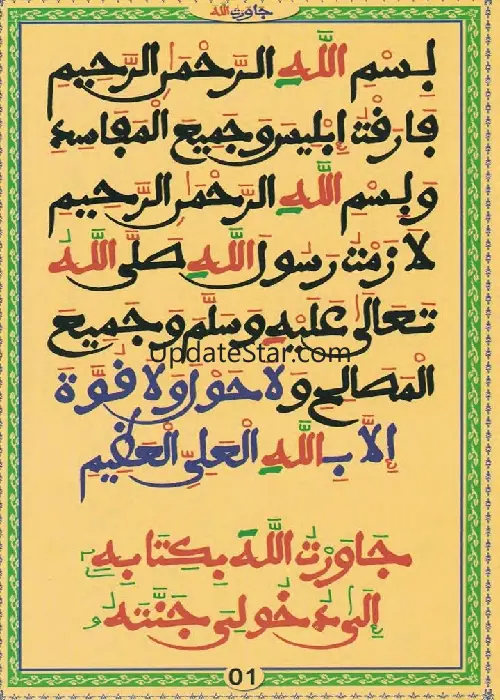 جاورت الله
بِسْمِ اللَّهِ الرَّحْمٰنِ الرَّحِيمِ
فَارَقْتُ إِبْلِيسَ وَجَمِيعَ الْمَفَاسِدِ
وَبِسْمِ اللَّهِ الرَّحْمٰنِ الرَّحِيمِ
لَازَمْتُ رَسُولَ اللَّهِ صَلَّى اللَّهُ
تَعَالَى عَلَيْهِ وَسَلَّمَ وَجَمِيعَ
updateStar.com
الْمَصَالِحِ وَلَا حَوْلَ وَلَا قُوَّةَ
إِلَّا بِاللَّهِ الْعَلِيِّ الْعَظِيمِ
جَاوَرْتُ اللَّهَ بِكِتَابِهِ
إِلَى دُخُولِي جَنَّتَهُ
01